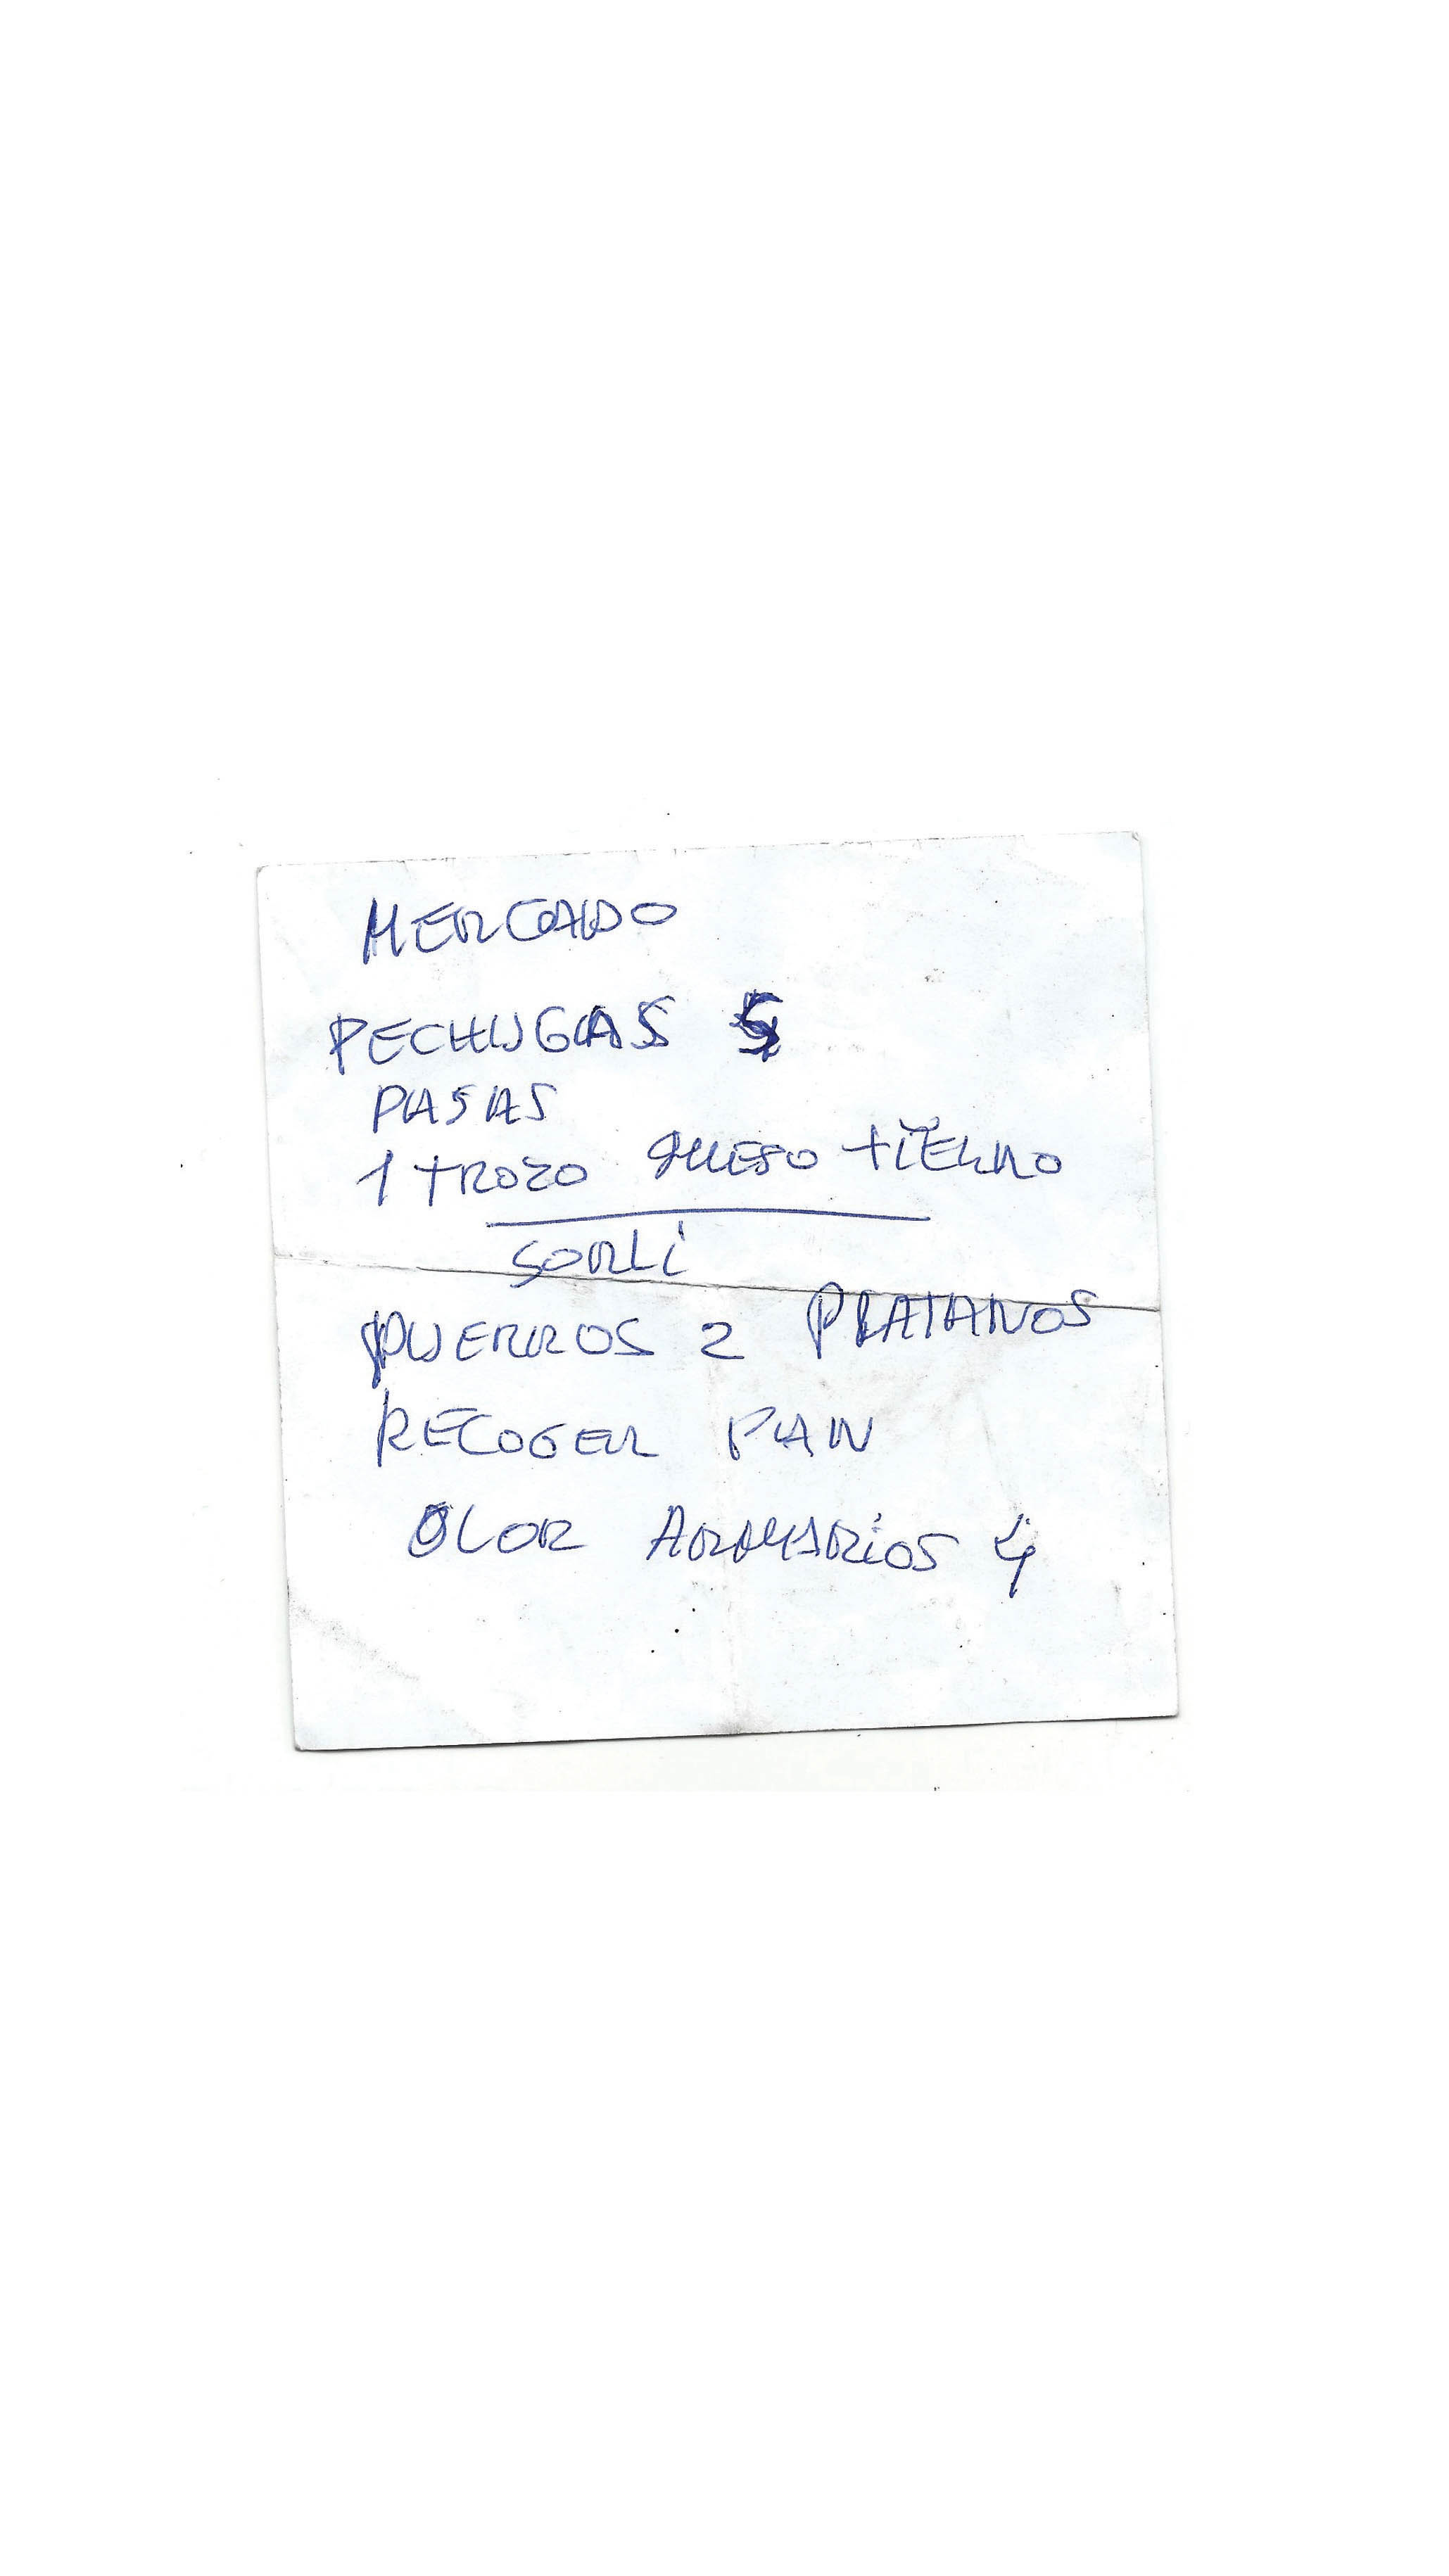 MERCADO
PECHUGAS 5
PASAS
1 TROZO QUESO TIERNO
SORLI
PUERROS 2 PLATANOS
RECOGER PAN
OLOR ARMARIOS 4